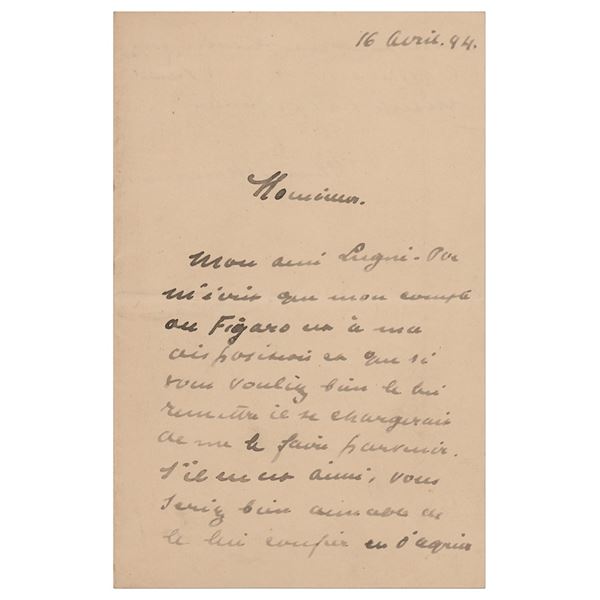 16 Avril. 94.
Monsieur.
Mon ami Lugné-Poe
m'écrit que mon compte
au Figaro est à ma
disposition et que si
vous vouliez bien le lui
remettre il se chargerait
de me le faire parvenir.
S'il en est ainsi, vous
seriez bien aimable de
le lui confier et d'agréer